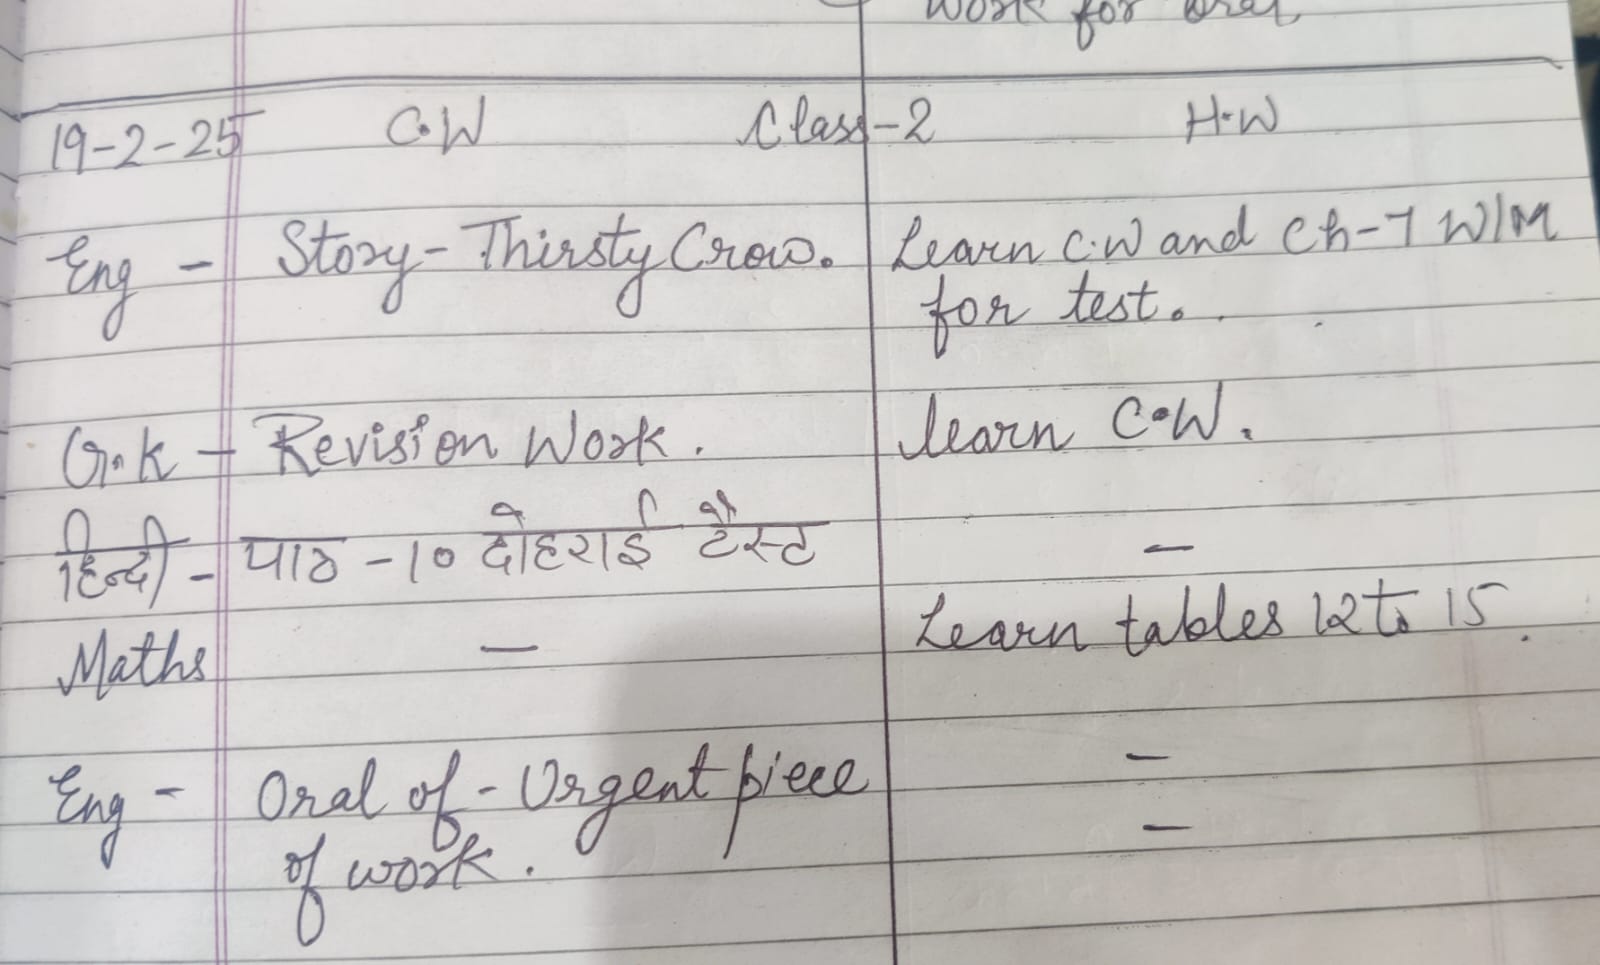 Work for oral
19-2-25 C.W Class-2 H.W
Eng - Story - Thirsty Crow. Learn C.W and Ch-7 W/M
for test.
G.K - Revision Work. learn C.W.
हिन्दी - पाठ -10 दोहराई टैस्ट -
Maths - Learn tables 12 to 15.
Eng - Oral of - Urgent piece -
of work. -